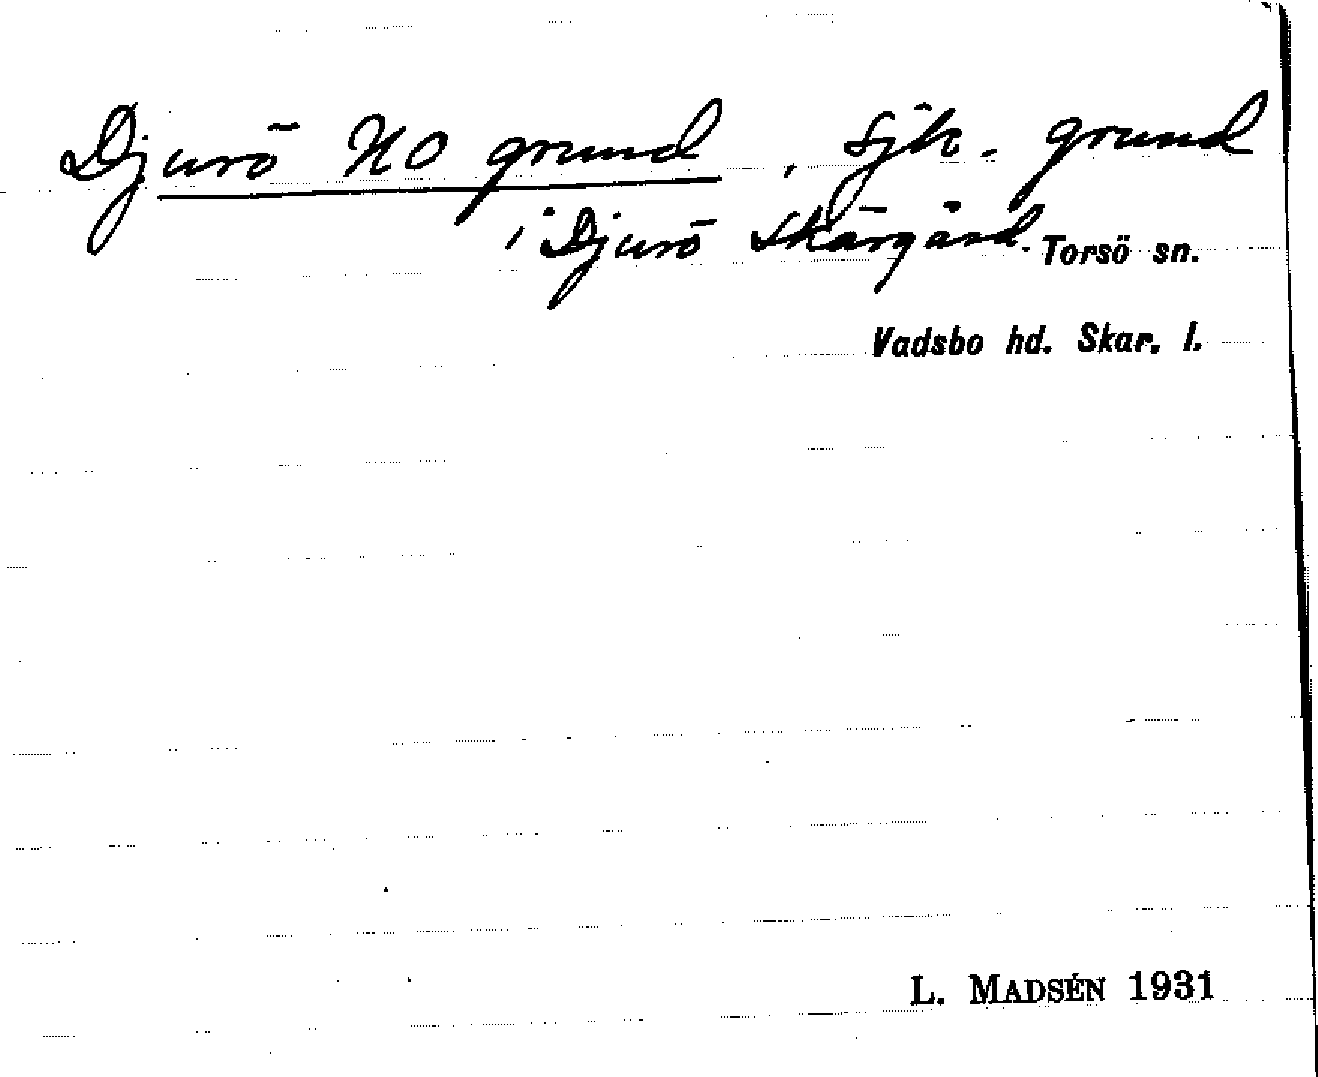 Djurö NO grund, Sjk. grund
i Djurö Skärgård. Torsö sn.
Vadsbo hd. Skar. l.
L. MADSÉN 1931